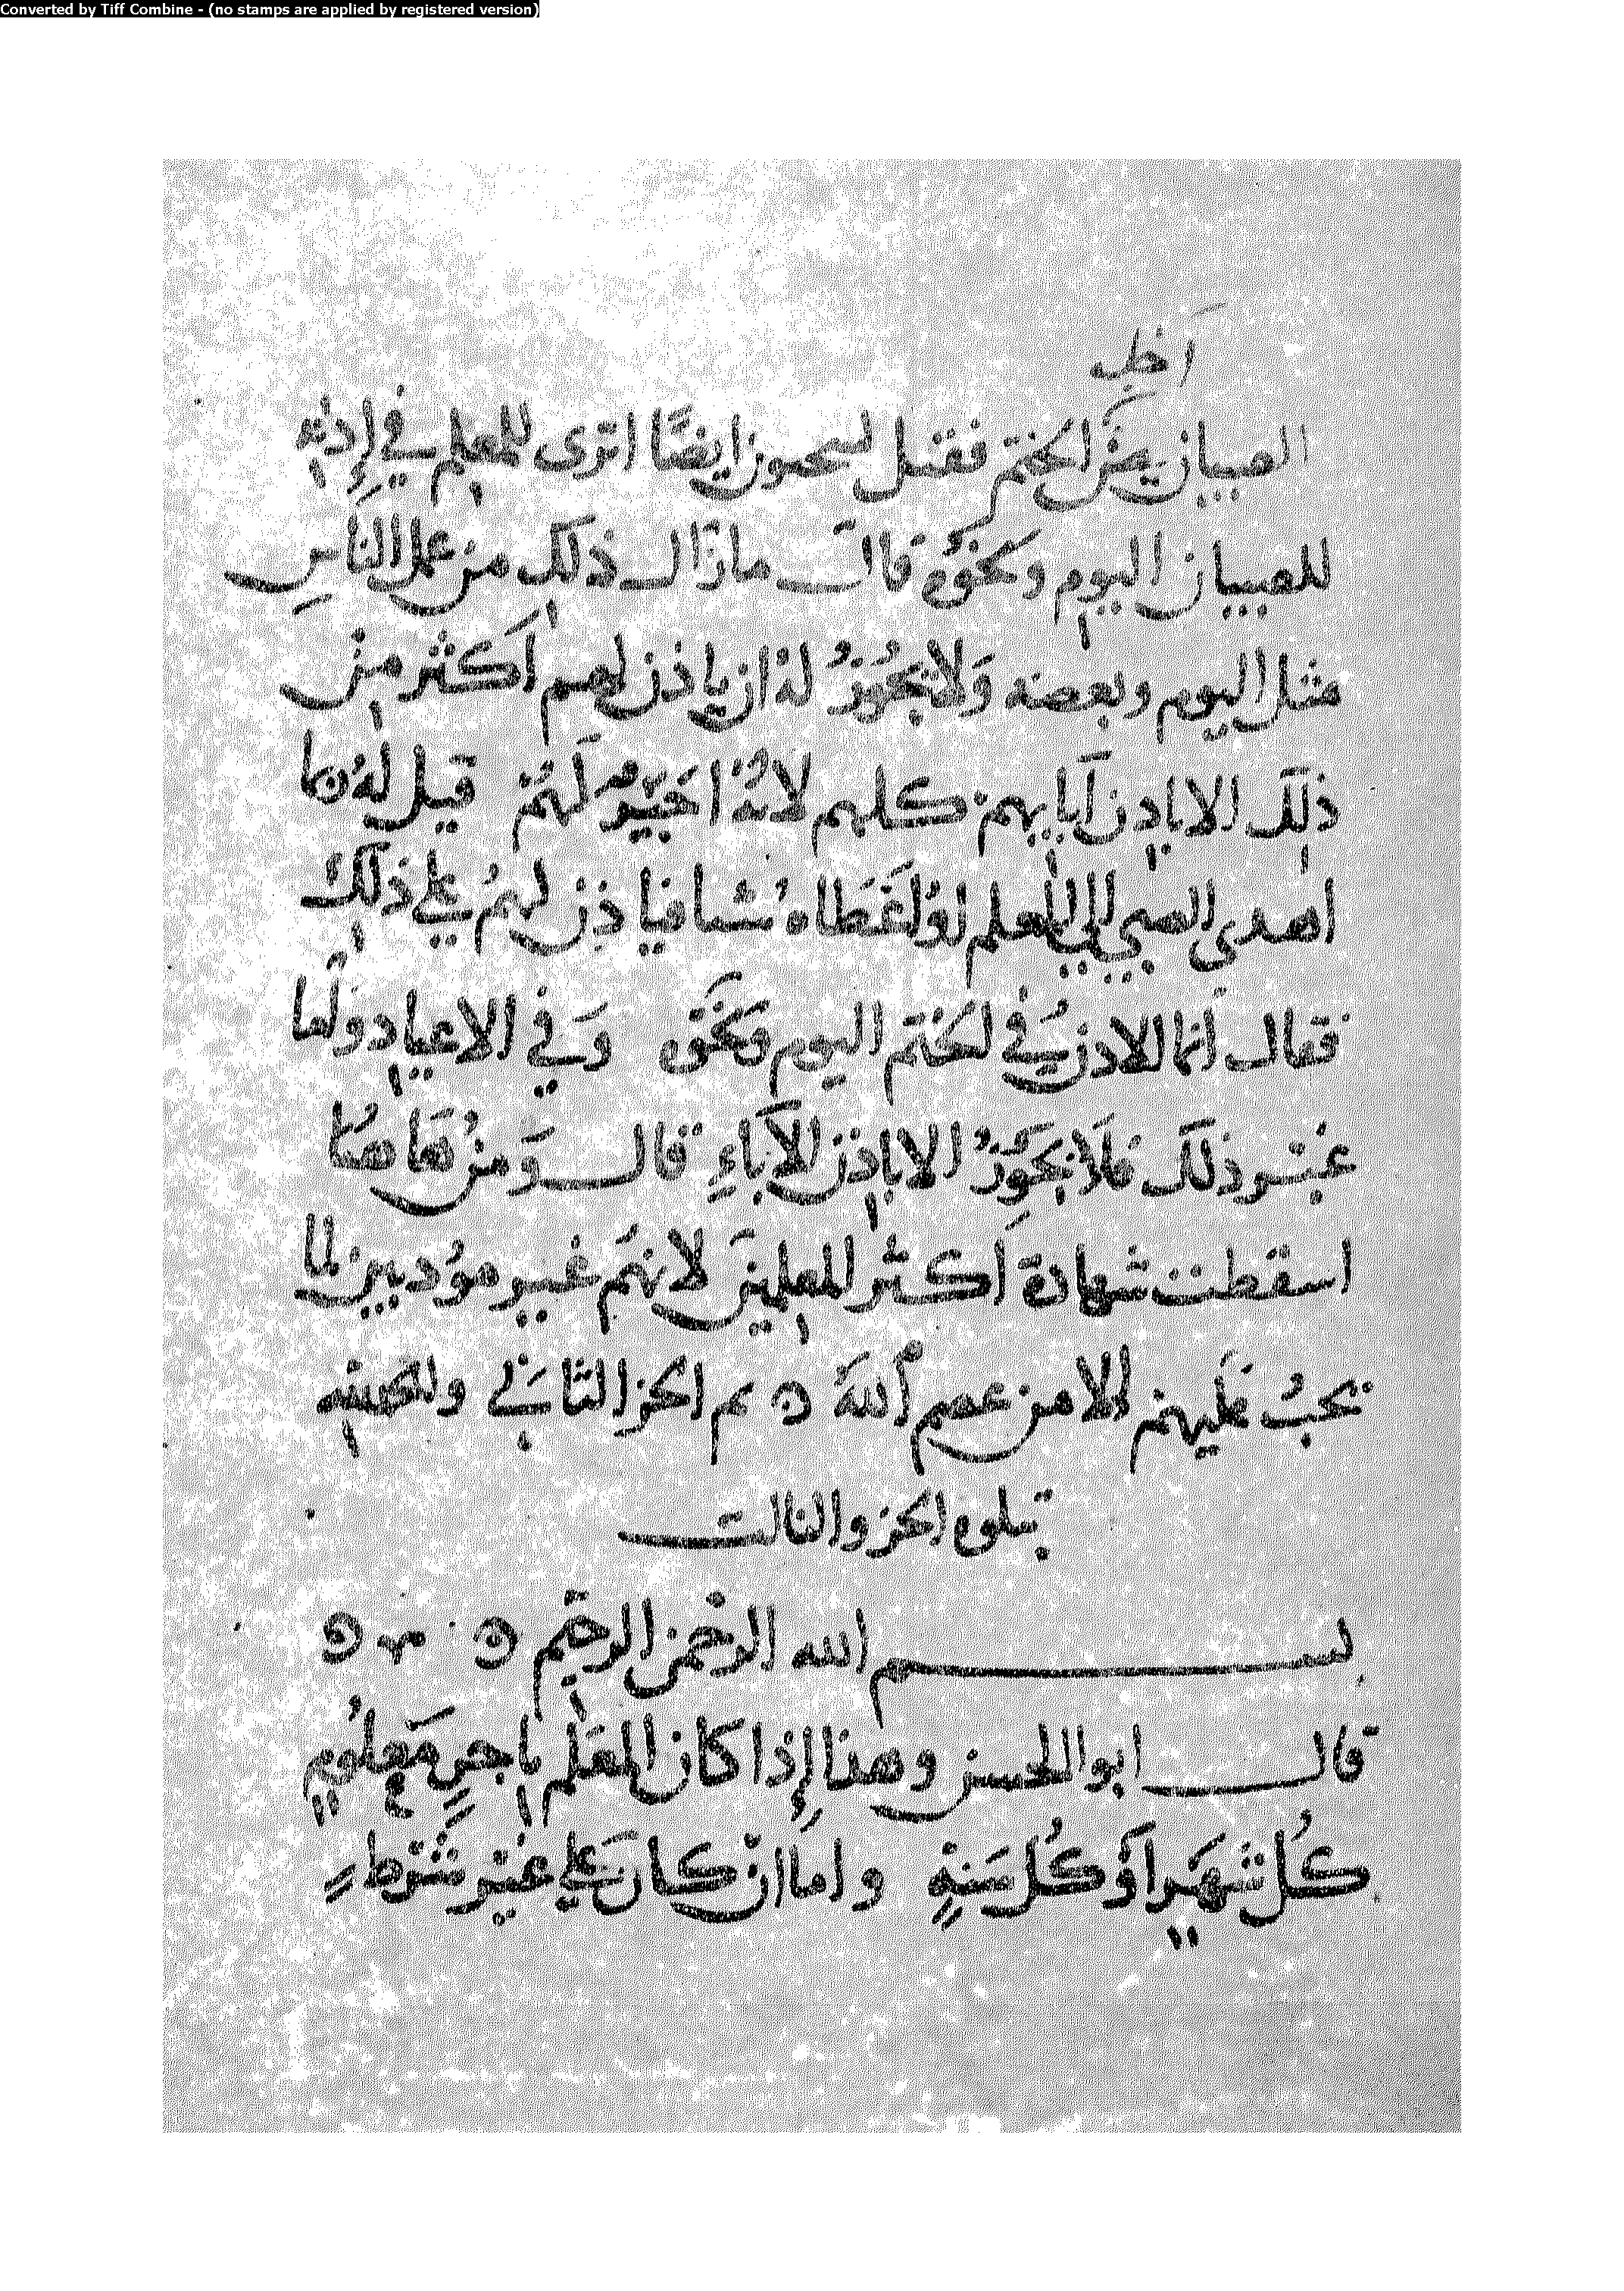 Converted by Tiff Combine - (no stamps are applied by registered version)
اجل
الصبيان من الختم فقيل لسحنون ايضًا اترى للمعلم في إِذنه
للصبيان اليوم ونحوه قال ما زال ذلك من عمل الناسِ
مثل اليوم وبعضه وَلا يَجُوزُ لهُ ان ياذن لهم اَكثر من
ذلك الا باذن آبايهم كلهم لاَنّهُ اَجيرٌ لَهُمْ قيل لهُ ربما
اهدى الصبي الى المعلم اوْ اَعْطَاه شيا فياذِن لهمُ على ذلك
فقال اَنما الاذنُ في الختم اليوم ونَحْوَه وَفي الاعياد واَما
غيْر ذلك فلَا يَجُوزُ الا باذن الآبَاءِ قال وَمن هَاهُنا
اسقطت شهادة اَكثر المعلمينَ لانهُم غير مؤدبين لما
يجبُ عَليهم الا من عصم اللهُ تم الجزء الثاني والحمد لله
يتلوه الجزء الثالث
بسم الله الرحمن الرحيم
قال ابو الحسن وهذا إِذا كان المعَلم باجرٍ مَعلومٍ
كُل شَهْرٍ اَوْ كُل سَنةٍ واما انْ كان عَلى غيْر شرْطٍ